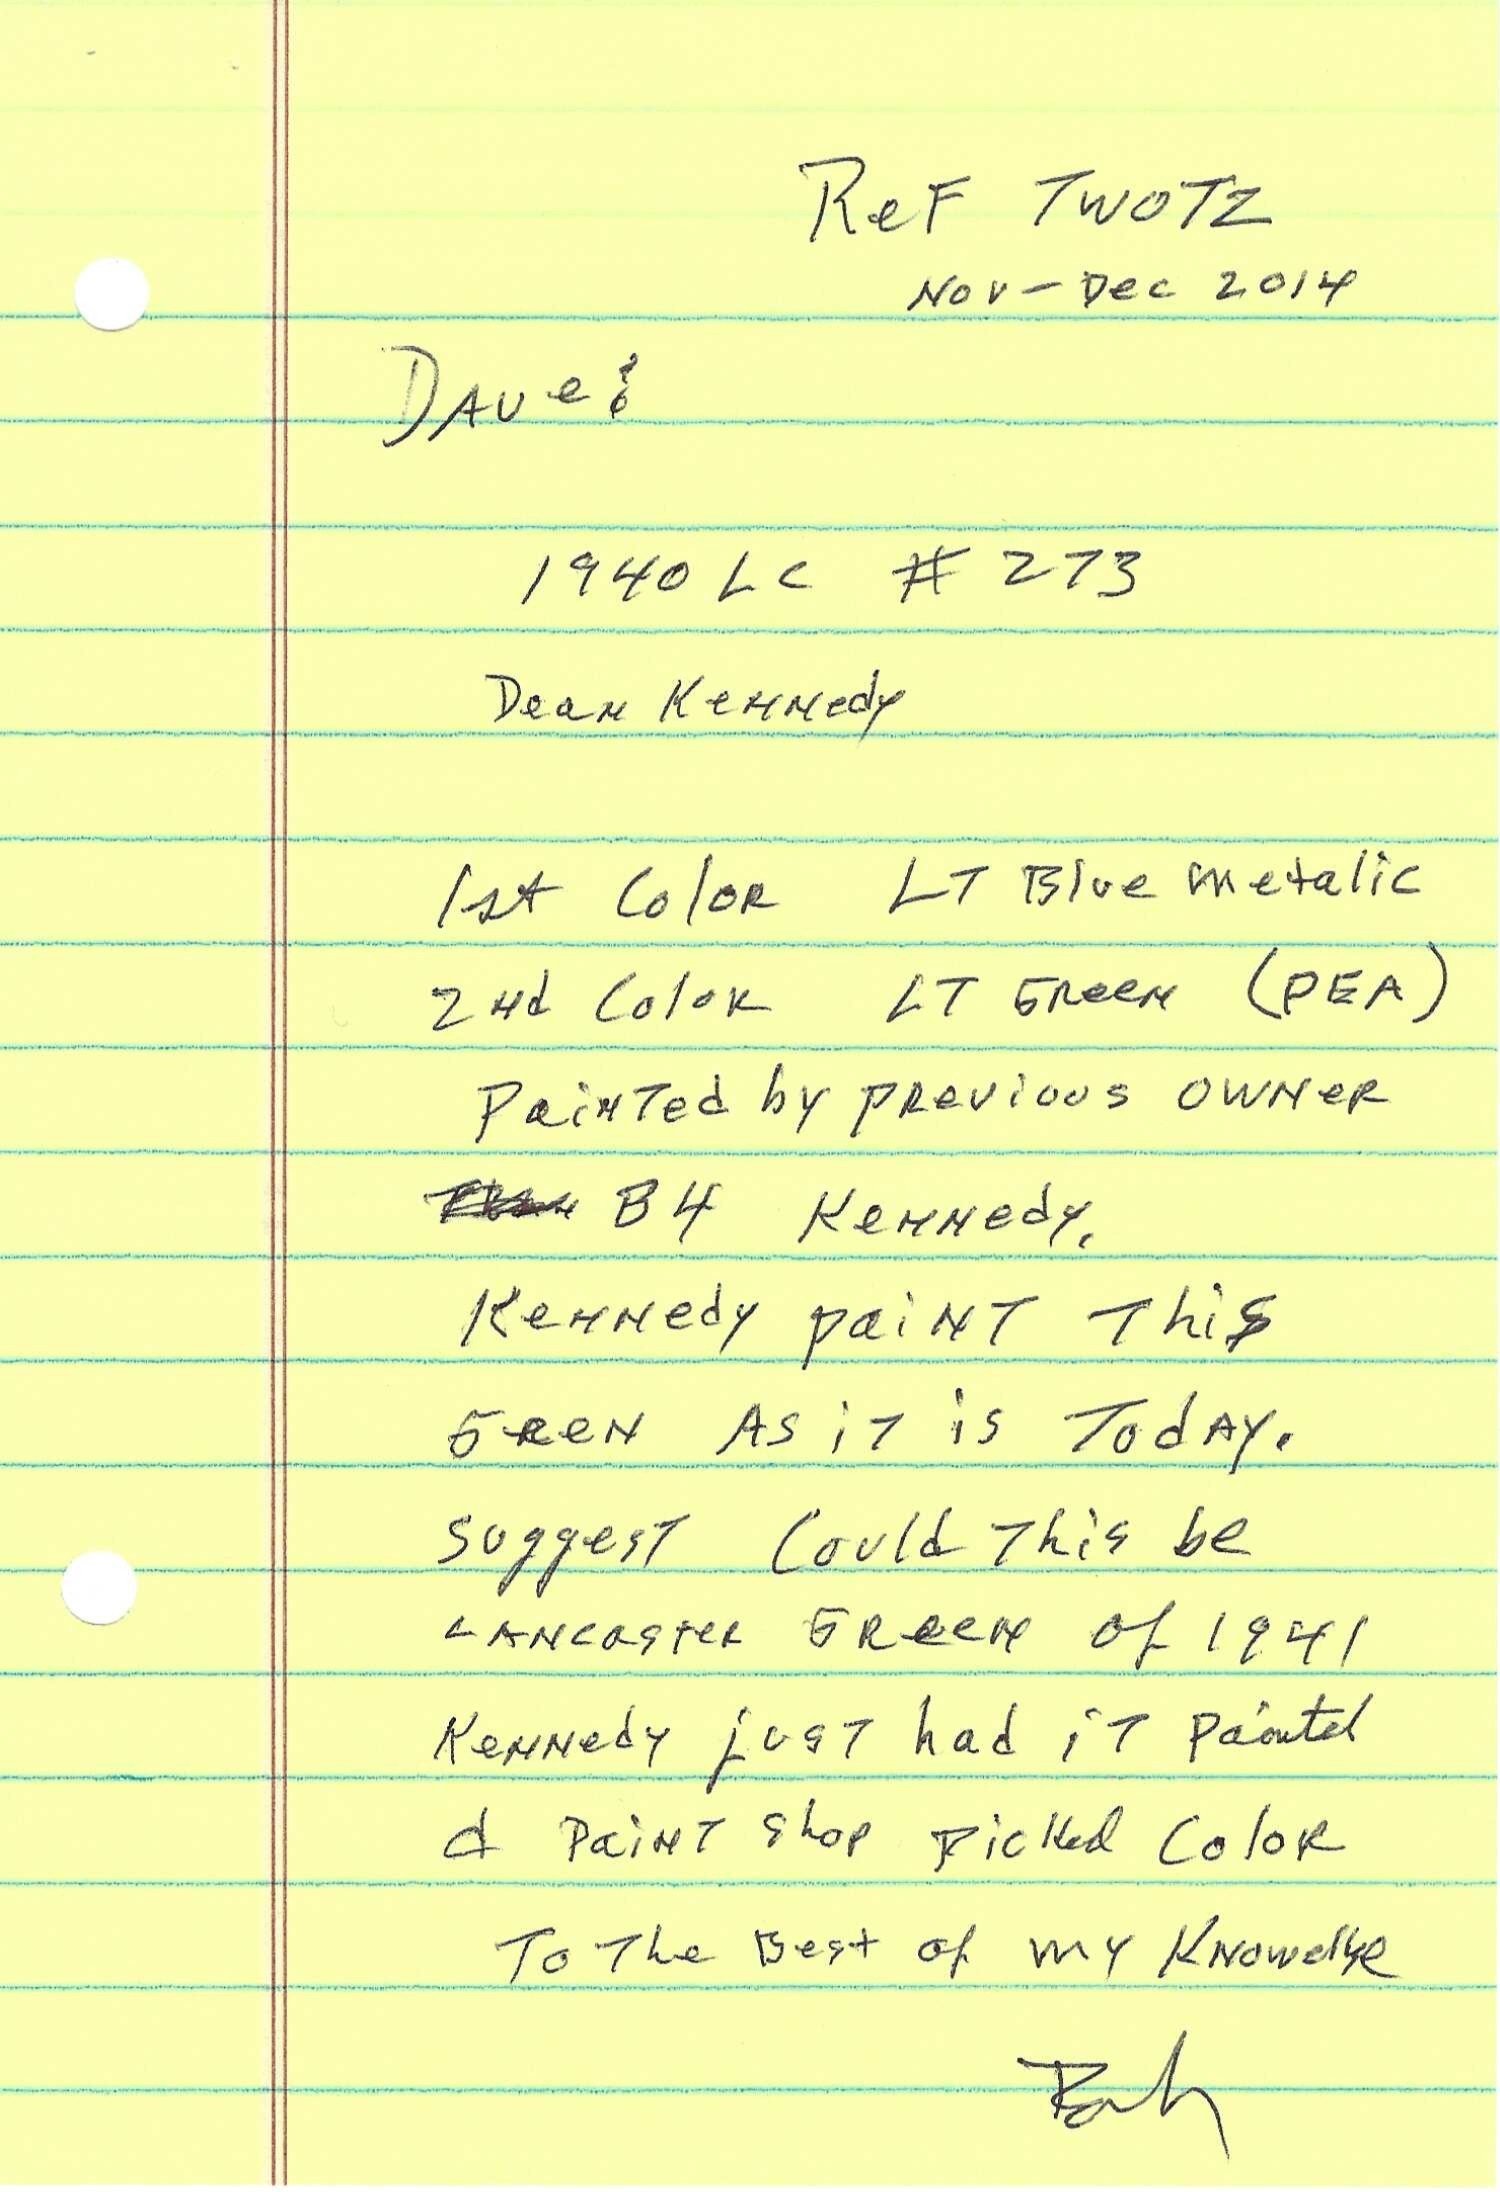 ReF TWOTZ
Nov-Dec 2014
Dave:
1940 LC # 273
Dean Kennedy
1st Color LT Blue metalic
2nd Color LT Green (PEA)
Painted by previous owner
B4 Kennedy.
Kennedy paint This
Gren As iT is Today.
suggest Could This be
Lancaster Green of 1941
Kennedy just had iT Painted
& Paint shop picked Color
To The Best of my